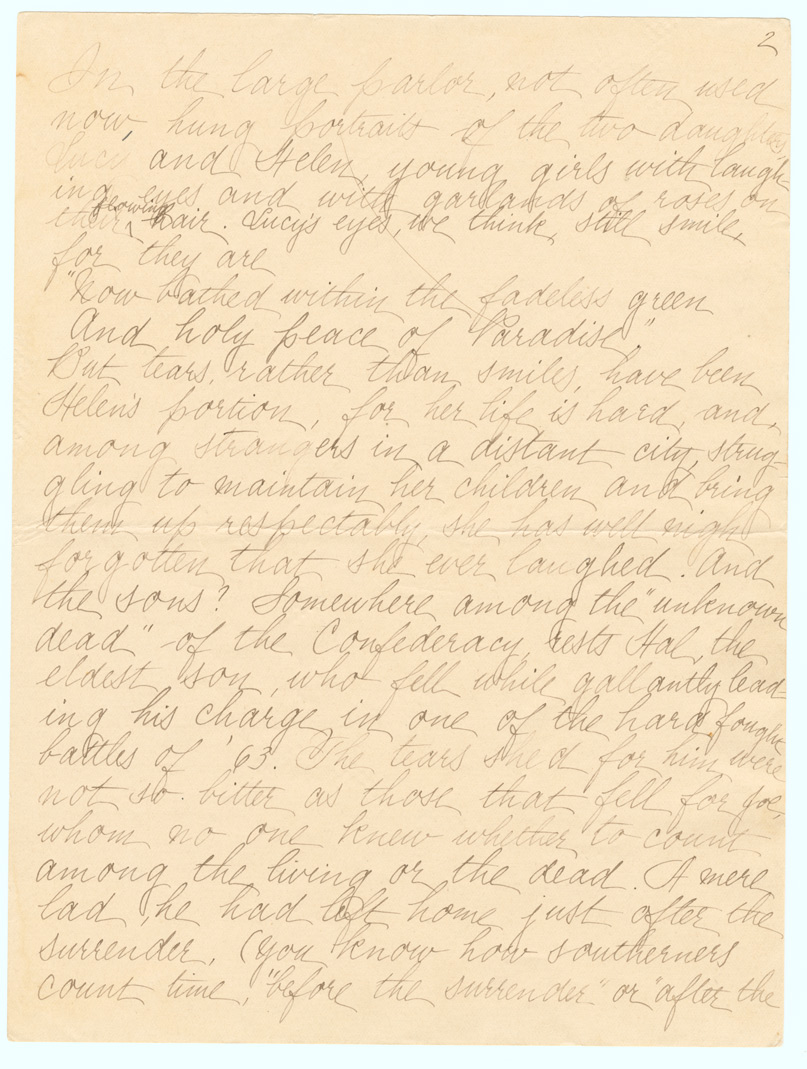 2
In the large parlor, not often used
now, hung portraits of the two daughters,
Lucy and Helen, young girls with laugh-
ing eyes and with garlands of roses on
their flowing hair. Lucy's eyes, we think, still smile,
for they are
"Now bathed within the fadeless green
And holy peace of Paradise."
But tears, rather than smiles, have been
Helen's portion, for her life is hard, and,
among strangers in a distant city, strug-
gling to maintain her children and bring
them up respectably, she has well nigh
forgotten that she ever laughed. And
the sons? Somewhere among the "unknown
dead" of the Confederacy, rests Hal, the
eldest son, who fell while gallantly lead-
ing his charge in one of the hard fought
battles of '63. The tears shed for him were
not so bitter as those that fell for Joe,
whom no one knew whether to count
among the living or the dead. A mere
lad, he had left home just after the
surrender, (you know how southerners
count time, "before the surrender" or "after the